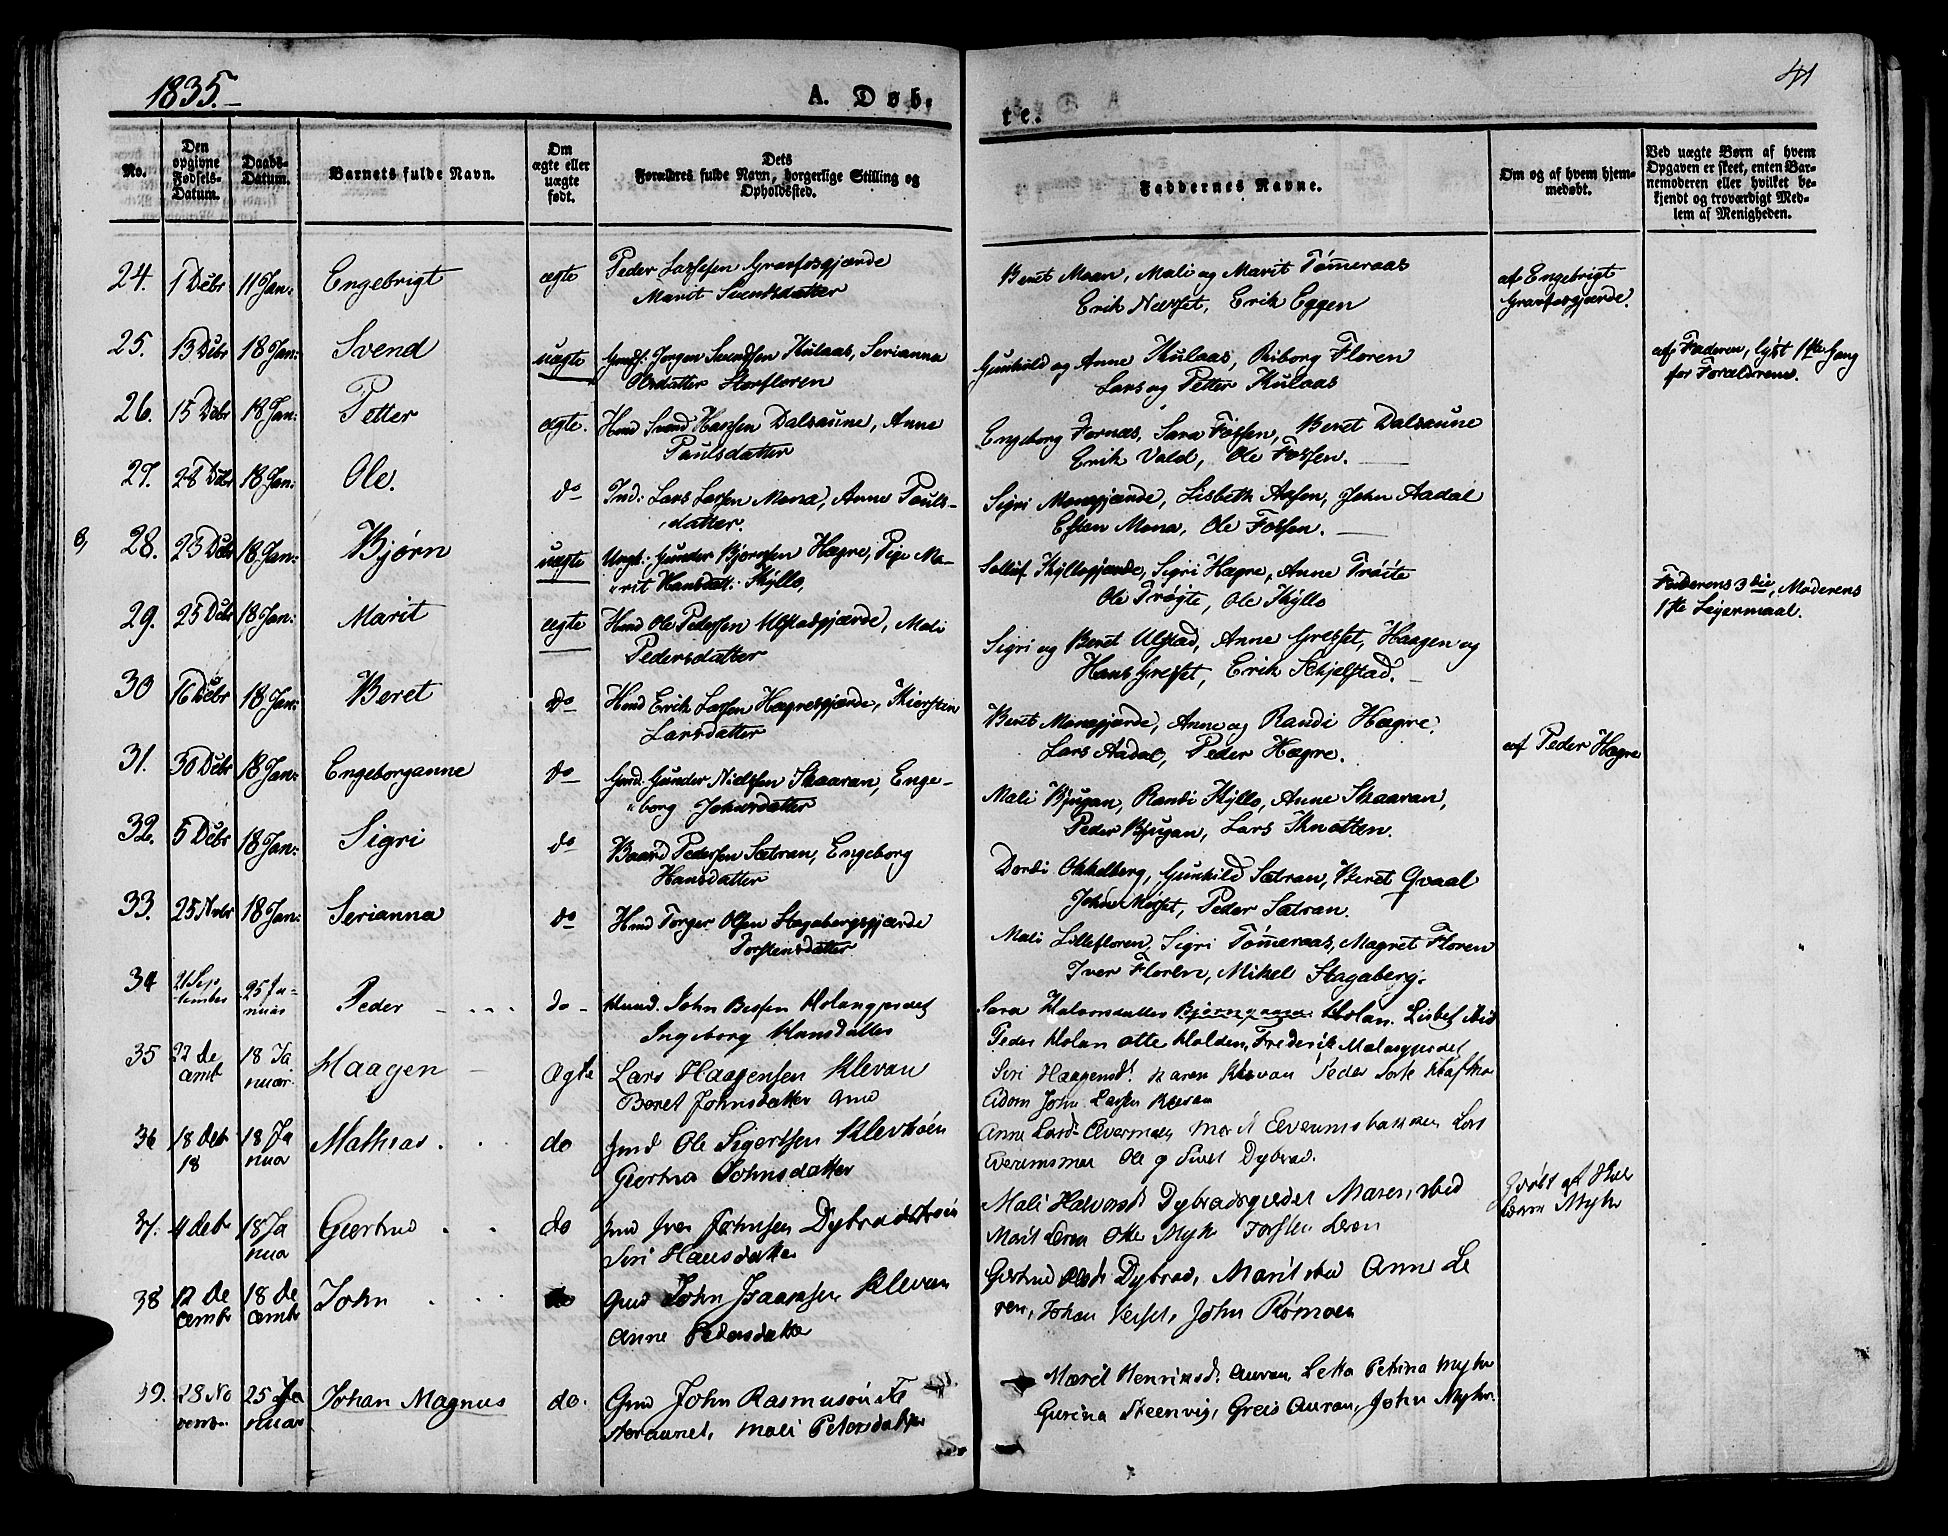 1835.
A. Døb-
te.
41
No.
Den opgivne Fødsels-Datum.
Daabs-Datum.
Barnets fulde Navn.
Om ægte eller uægte født.
Dets Forældres fulde Navn, borgerlige Stilling og Opholdssted.
Faddernes Navne.
Om og af hvem hjemmedøbt.
Ved uægte Børn af hvem Opgaven er skeet, enten Barnemoderen eller hvilket bekjendt og troværdigt Medlem af Menigheden.
24. 1 Debr 11 Jan: Engebrigt ægte Peder Larssen Granfosgjærde
Marit Svendsdatter
Beret Moan, Mali og Marit Tømeraas
Erik Nesset, Erik Eggen
af Engebrigt
Granfosgjærde.
25. 13 Debr 18 Jan: Svend uægte Gmdf: Jørgen Svendsen Kulaas, Serianna
Olsdatter Storfloren
Gunhild og Anne Kulaas, Riborg Floren
Lars og Petter Kulaas
af Faderen, lyst 1ste Gang
for Forældrene.
26. 15 Debr 18 Jan: Petter ægte. Hmd Svend Hansen Dalsaune, Anne
Paulsdatter
Engeborg Fornæs, Sara Fossen, Beret Dalsaune
Erik Vold, Ole Fossen.
27. 28 Debr 18 Jan: Ole. do Ind: Lars Larsen Mona, Anne Pouls-
datter.
Sigri Monagjærde, Lisbeth Aasen, John Aadal
Esten Mona, Ole Fossen.
28. 23 Debr 18 Jan: Bjørn uægte Ungk: Gunder Bjørnsen Hægre, Pige Ma-
rit Hansdatt: Kyllo,
Solluf Kyllogjærde, Sigri Hægre, Anne Trøite
Ole Trøgte, Ole Kyllo
Faderens 3die, Moderens
1ste Leiermaal.
29. 25 Debr 18 Jan: Marit ægte Hmd Ole Pedersen Ulstadgjærde, Mali
Pedersdatter
Sigri og Beret Ulstad, Anne Gresset, Haagen og
Hans Gresset, Erik Schjelstad.
30 16 Debr 18 Jan: Beret do Hmd Erik Larsen Hægresgjærde, Kiersten
Larsdatter
Beret Monagjærde, Anne og Randi Hægre,
Lars Aadal, Peder Hægre.
af Peder Hægre
31. 30 Debr 18 Jan: Engeborganne do Gmd: Gunder Nielssen Skaaran, Enge-
borg Johnsdatter
Mali Bjugan, Randi Kyllo, Anne Skaaran,
Peder Bjugan, Lars Knotten.
32. 5 Debr 18 Jan: Sigri do Baard Pedersen Sætran, Engeborg
Hansdatter
Dordi Okkelberg, Gunhild Sætran, Beret Qvaal
John Moset, Peder Sætran.
33. 25 Nvbr 18 Jan: Serianna do Hmd Torger Olsen Stagabergsgjærde
Torstensdatter
Mali Lillefloren, Sigri Tømeraas, Magret Floren
Iver Floren, Mikel Stagaberg.
34 21 Sep-
tember 25 Ja-
nuar Peder do Huusd. John Bersen Holangjerdet
Ingeborg Hansdatter
Sara Halvorsdatter Holan. Lisbet
Peder Holan Otte Holden, Frederik
35 22 De
cemb 18 Ja
nuar. Haagen Ægte Lars Haagensen Klevan
Beret Johnsdatter Gmd
Siri Haagensd. Karen Klevan Peder
John Larsen
36 18 deb
18 18 Ja
nuar Mathias. do Gmd Ole Sigertsen Klevhøen
Giertru Johnsdatter
Anne Larsd Marit Lars
Ole g Siret Dybvad.
37. 4 deb 18 Ja
nuar Giertrud do Gmd Iver Johnsen
Siri Hansdatter
Mali Halvorsd Dybvadsgierdet Maren
Marit Leren Otte Myhr Torsten Leren
Myhr
38 12 De
cemb 18 de
cemb John do Gmd John Isaacsen Klevan
Anne Pedersdatter
Giertrud Olsd Dybvad, Marit Anne Le
ren, Johan John Rømoen
39. 28 No
vemb. 25 Ja
nuar Johan Magnus do. Gmd John Rasmusøn
Mali Petersdatter
Marit Henriksd. Auran Petrina Myhr
Gurina Steenvig, Greis Auran, John Myhr.